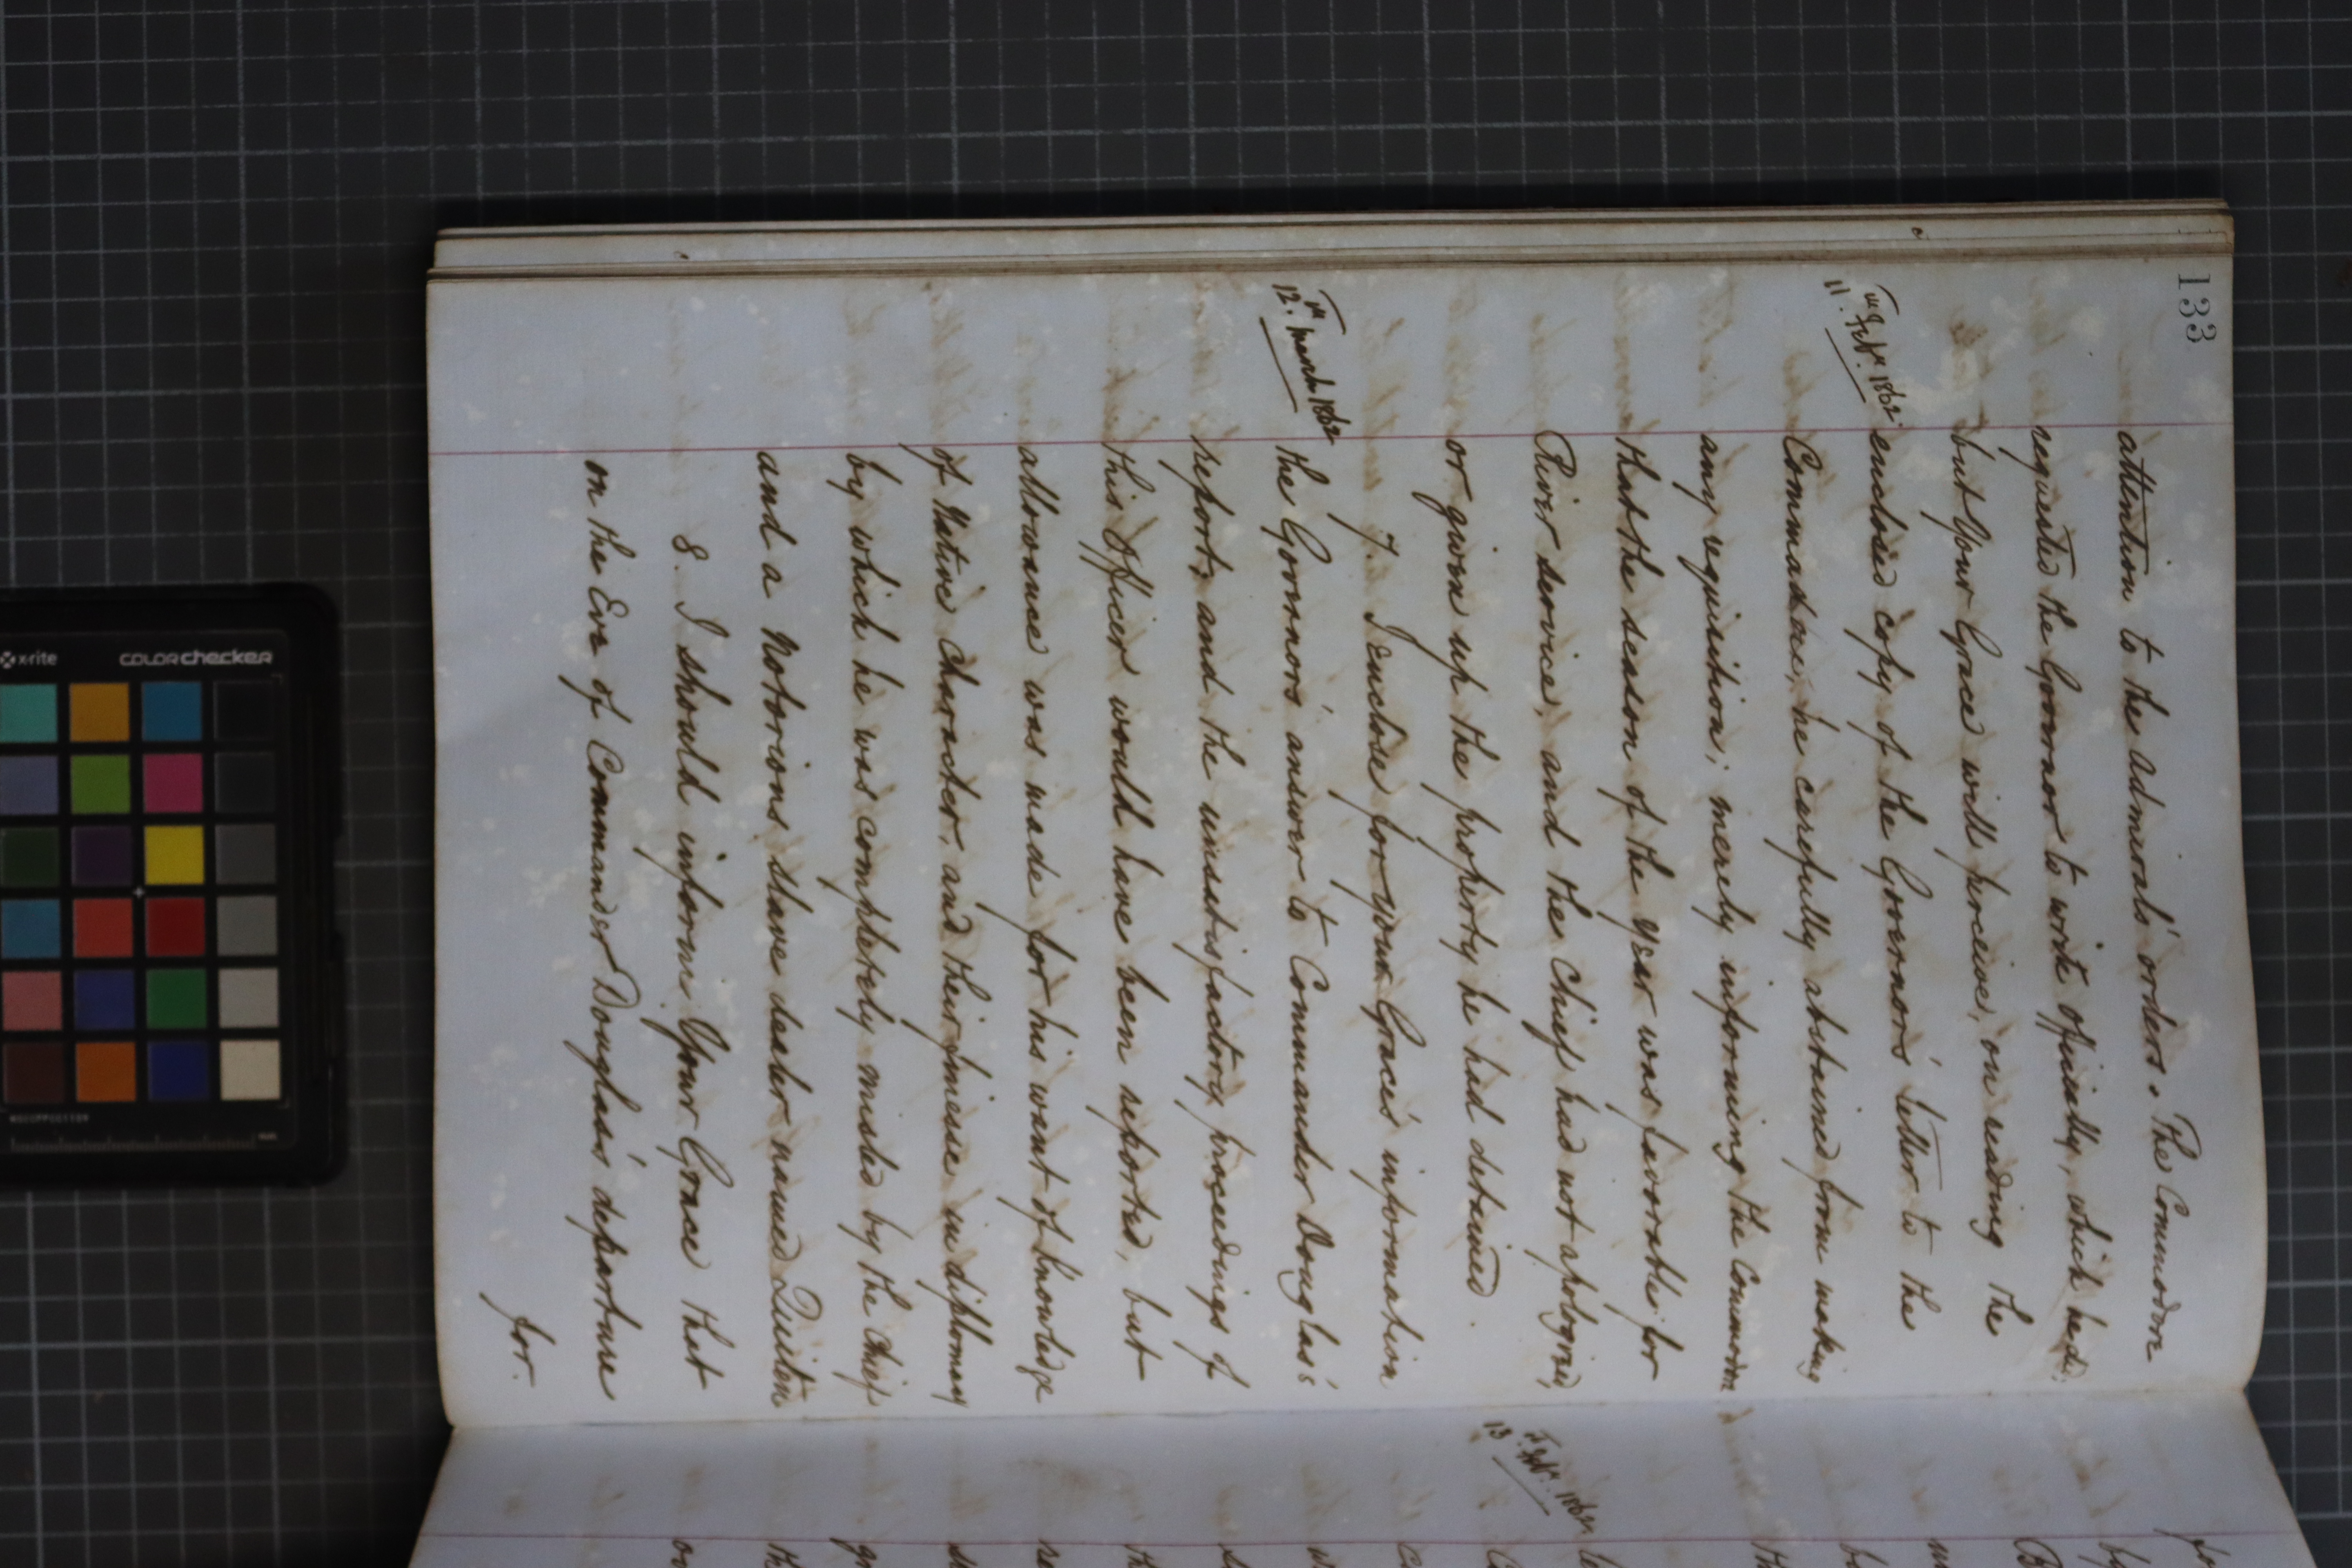 133
attention to the Admirals' orders. The Commodore
requested the Governor to write officially, which he did,
but Your Grace will perceive, on reading the
11.th Feby. 1862
enclosed copy of the Governors' letter to the
Commodore, he carefully abstained from making
any requisition; merely informing the Commodore
that the season of the year was favorable for
River service, and the Chief had not apologized,
or given up the property he had detained.
7. I enclose for your Grace's information
12.th March 1862
the Governors' answer to Commander Douglas's
report, and the unsatisfactory proceedings of
this Officer would have been reported, but
allowance was made for his want of knowledge
of Native Character, and their finesse in diplomacy
by which he was completely misled by the Chief
and a Notorious slave dealer named
8. I should inform Your Grace that
on the Eve of Commander Douglas's departure
for.
13.th Feby. 1862
x-rite
colorchecker